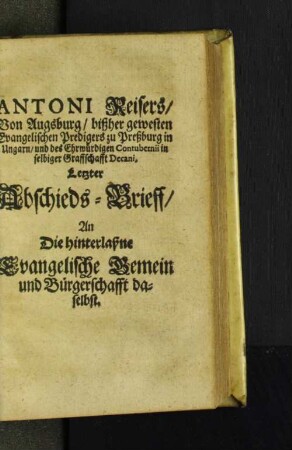 ANTONI Reisers/
Von Augsburg/ bißher gewesten
Evangelischen Predigers zu Preßburg in
Ungarn/ und des Ehrwürdigen Contubernii in
selbiger Graffschafft Decani,
Letzter
Abschieds-Brieff/
An
Die hinterlaßne
Evangelische Gemein
und Bürgerschafft da-
selbst.